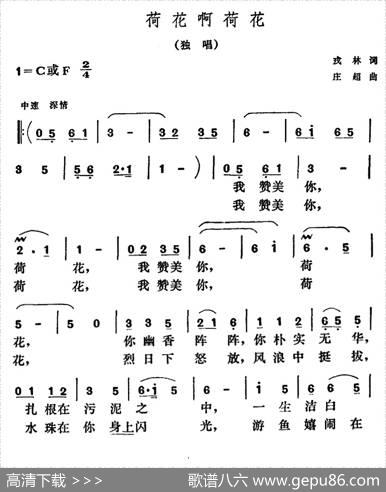 荷花啊荷花
(独唱)
1=C或F 2/4
戎林 词
庄超 曲
中速 深情
‖:( 05 61 | 3 - | 32 35 | 6 - | 6 - | 6i 65 |
35 | 56 2·1 | 1 - ) | 05 61 | 3 - | 3 - |
我 赞美 你,
我 赞美 你,
2·1 | 1 - | 02 35 | 6 - | 6 6i | 6·5 |
荷 花, 我 赞美 你, 荷
荷 花, 我 赞美 你, 荷
5 - | 5 0 | 3 35 | 2 21 | 6·1 2 | 65 5 |
花, 你幽香 阵阵,你朴实 无华,
花, 烈日下 怒放,风浪中 挺拔,
01 12 | 3·5 | 6i·5 | 6 - | 7 67 | 6 35 |
扎根在 污泥之 中, 一生洁白
水珠在你 身上闪 光, 游鱼嬉闹在
高清下载 >>>
歌谱八六 www.gepu86.com